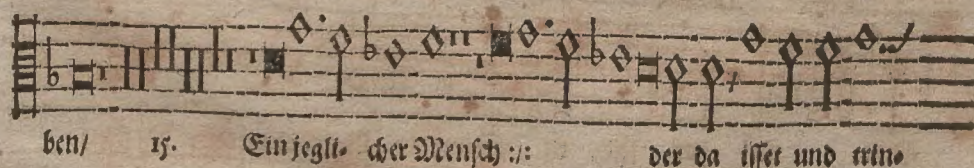 ben/ 15. Ein jegli⸗ cher Mensch :/: der da isset und trin⸗